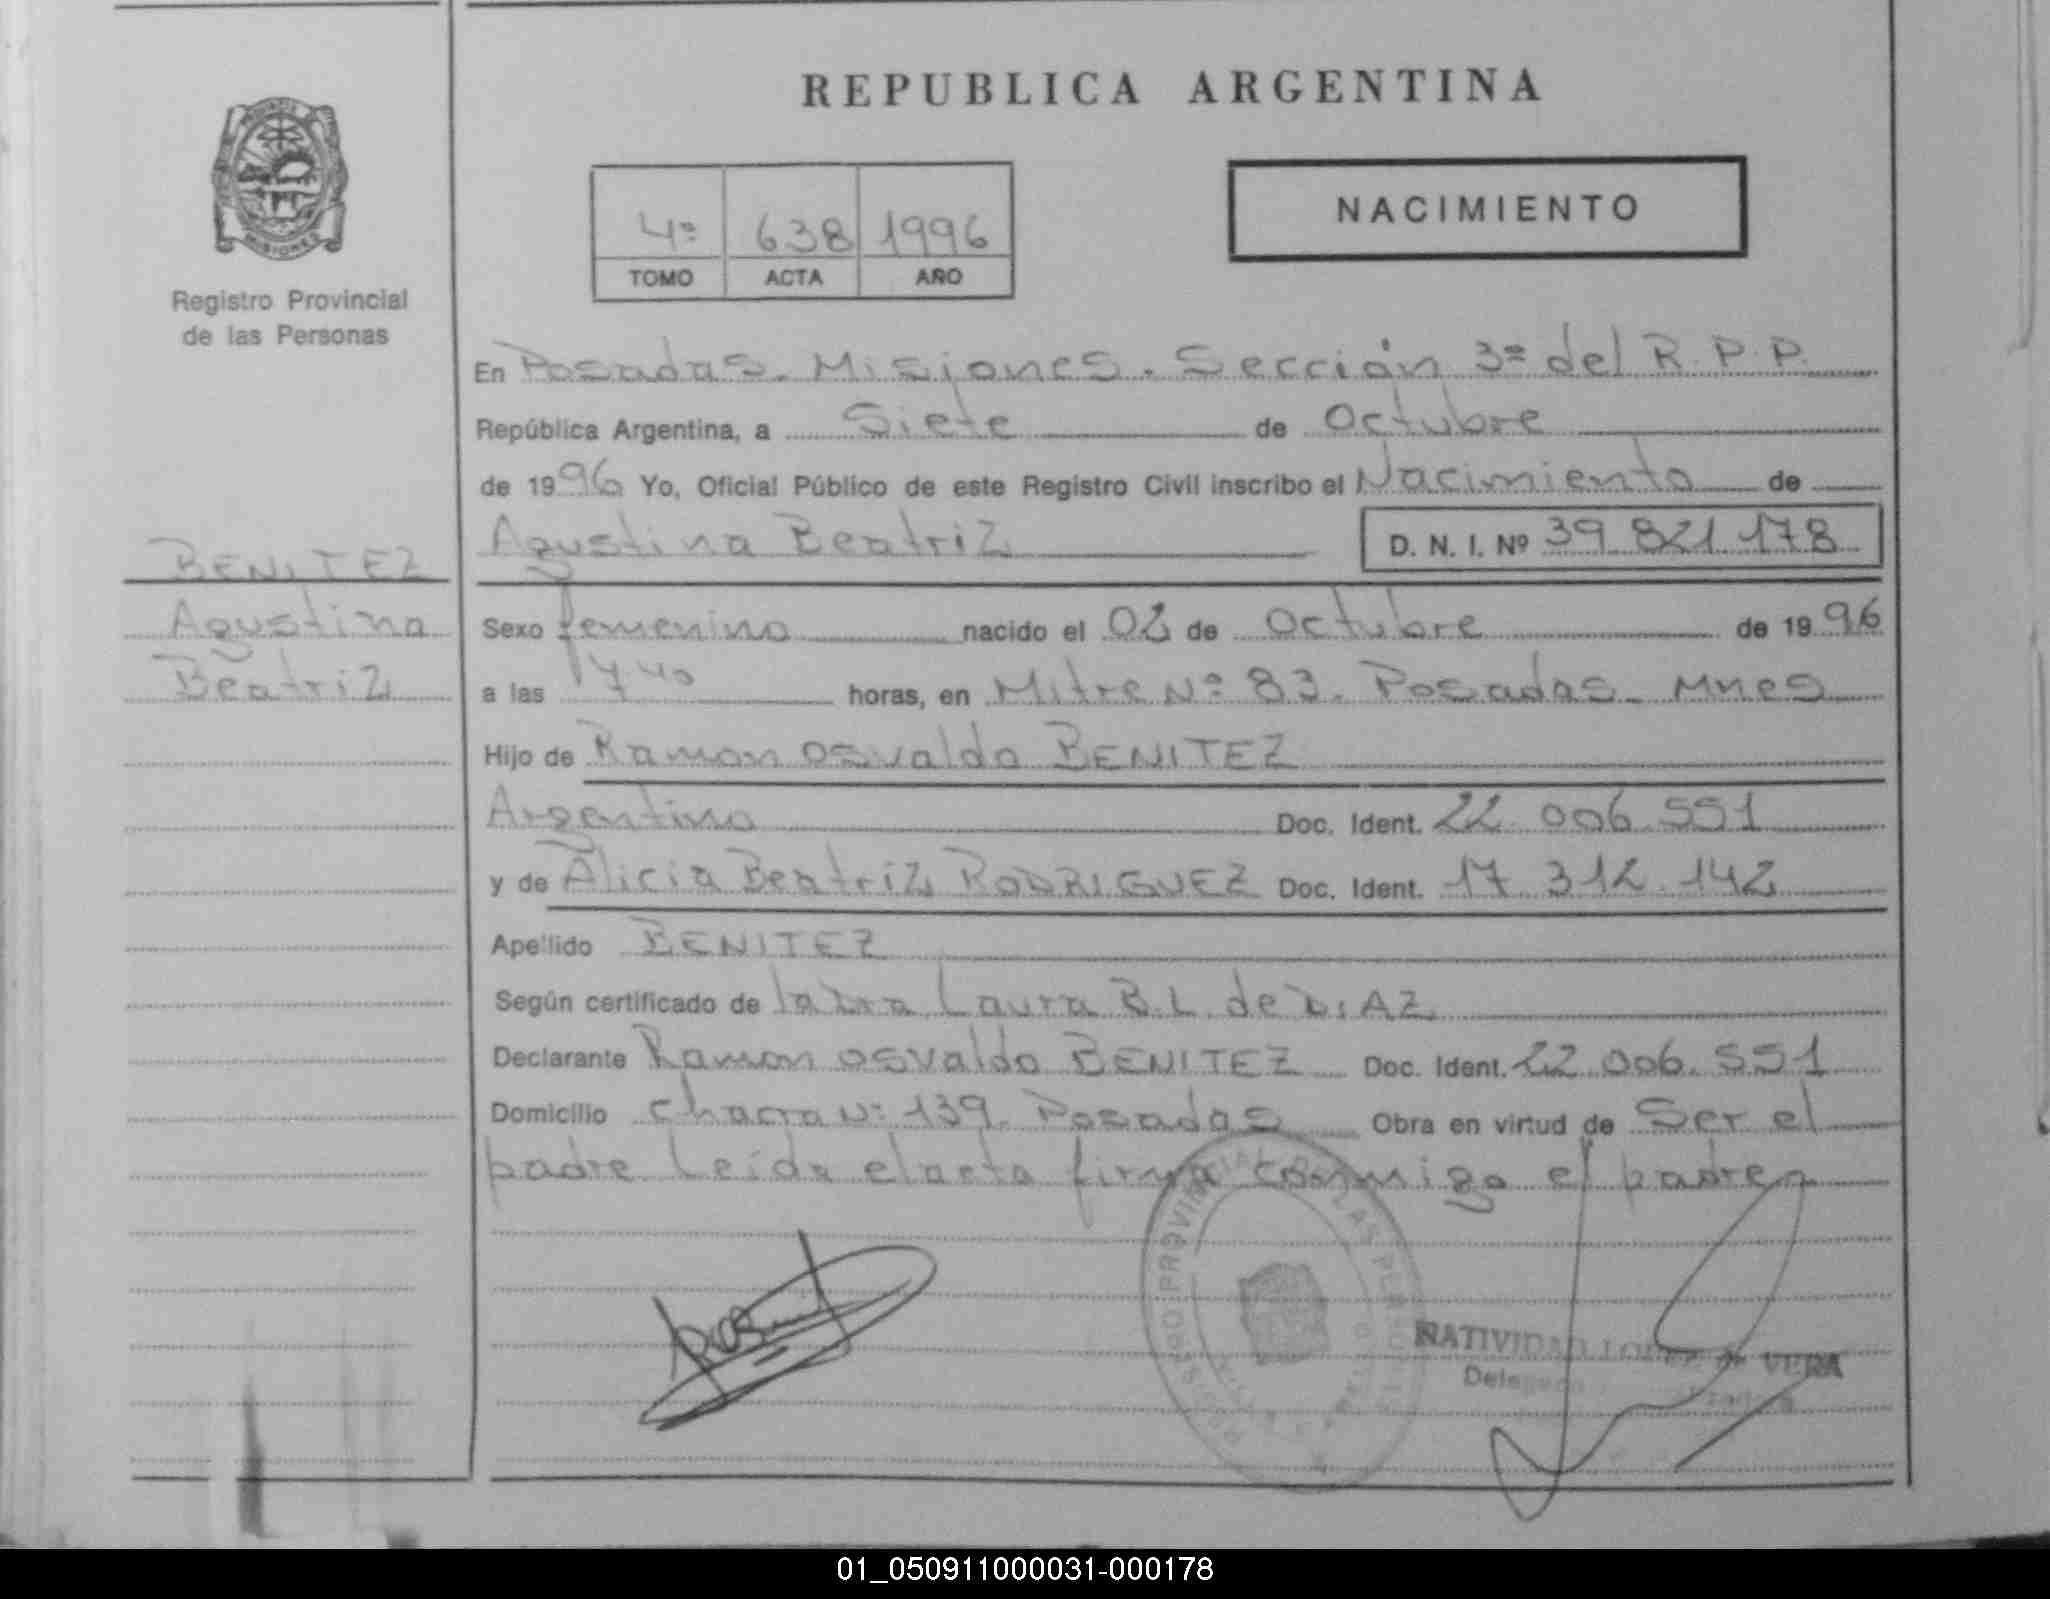 REPUBLICA ARGENTINA
MISIONES
Registro Provincial
de las Personas
4º 638 1996
TOMO ACTA AÑO
NACIMIENTO
En Posadas. Misiones. Sección 3ª del R.P.P.
República Argentina, a Siete de Octubre
de 1996 Yo, Oficial Público de este Registro Civil inscribo el Nacimiento de
Agustina Beatriz D. N. I. Nº 39 821 178
BENITEZ
Agustina
Beatriz
Sexo femenino nacido el 02 de Octubre de 1996
a las 17 40 horas, en Mitre Nº 83. Posadas - Mnes
Hijo de Ramon Osvaldo BENITEZ
Argentino Doc. Ident. 22.006.551
y de Alicia Beatriz RODRIGUEZ Doc. Ident. 17.312.142
Apellido BENITEZ
Según certificado de la Dra Laura B.L. de DIAZ
Declarante Ramon Osvaldo BENITEZ Doc. Ident. 22.006.551
Domicilio Chacra Nº 139. Posadas Obra en virtud de Ser el
padre Leída el acta firma conmigo el padre
NATIVIDAD LOPEZ de VERA
01_050911000031-000178